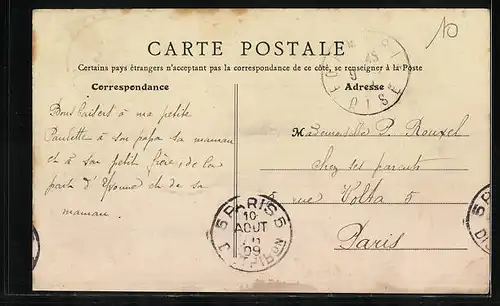 10
CARTE POSTALE
Certains pays étrangers n'acceptent pas la correspondance de ce côté, se renseigner à la Poste
Correspondance
Adresse
Bons baisers à ma petite
Paulette à son papa sa maman
et à son petit frère, de la
part d'Yvonne et de sa
maman.
Mademoiselle P. Rouxel
chez ses parents
5 rue Volta 5
Paris
5 PARIS 5
10
AOUT
09
DISTRIBON
OISE
5